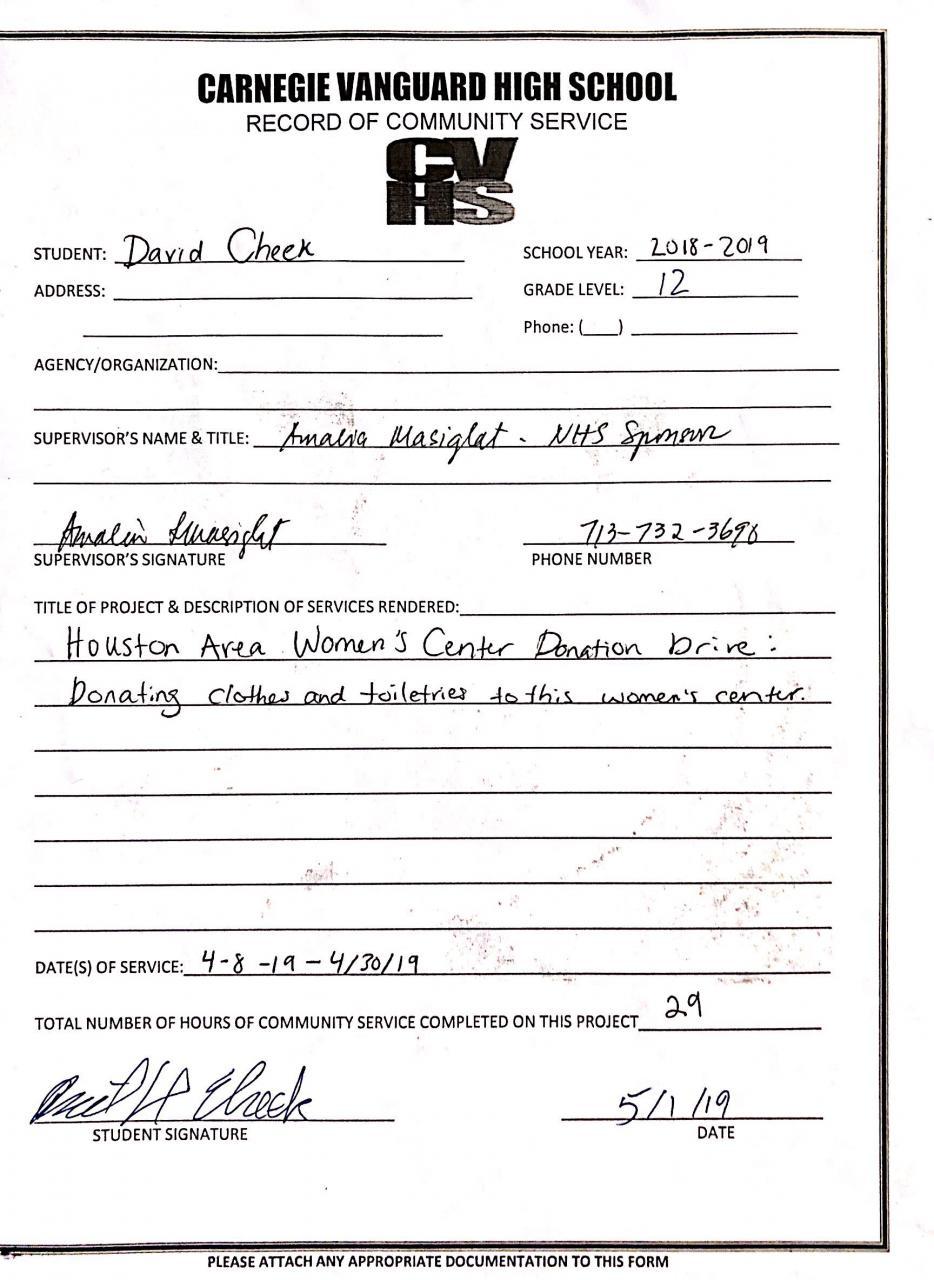 CARNEGIE VANGUARD HIGH SCHOOL
RECORD OF COMMUNITY SERVICE
CV
HS
STUDENT: David Cheek
SCHOOL YEAR: 2018-2019
ADDRESS:
GRADE LEVEL: 12
Phone: (___)
AGENCY/ORGANIZATION:
SUPERVISOR'S NAME & TITLE: Amalia Masiglat - NHS Sponsor
713-732-3698
SUPERVISOR'S SIGNATURE
PHONE NUMBER
TITLE OF PROJECT & DESCRIPTION OF SERVICES RENDERED:
Houston Area Women's Center Donation Drive:
Donating clothes and toiletries to this women's center.
DATE(S) OF SERVICE: 4-8-19 - 4/30/19
TOTAL NUMBER OF HOURS OF COMMUNITY SERVICE COMPLETED ON THIS PROJECT 29
Cheek
5/1/19
STUDENT SIGNATURE
DATE
PLEASE ATTACH ANY APPROPRIATE DOCUMENTATION TO THIS FORM